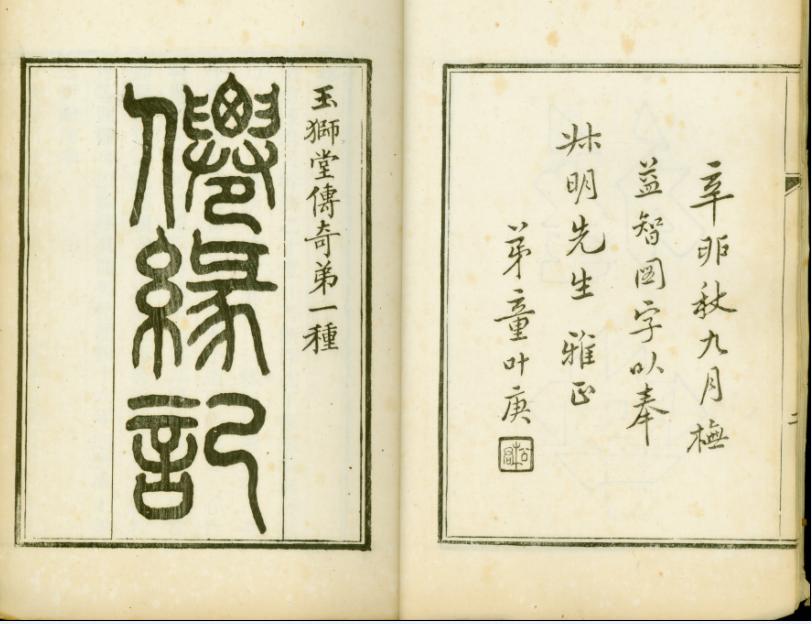 辛卯秋九月橅
益智圖字以奉
叔明先生 雅正
弟童叶庚
二
玉獅堂傳奇弟一種
僊緣記